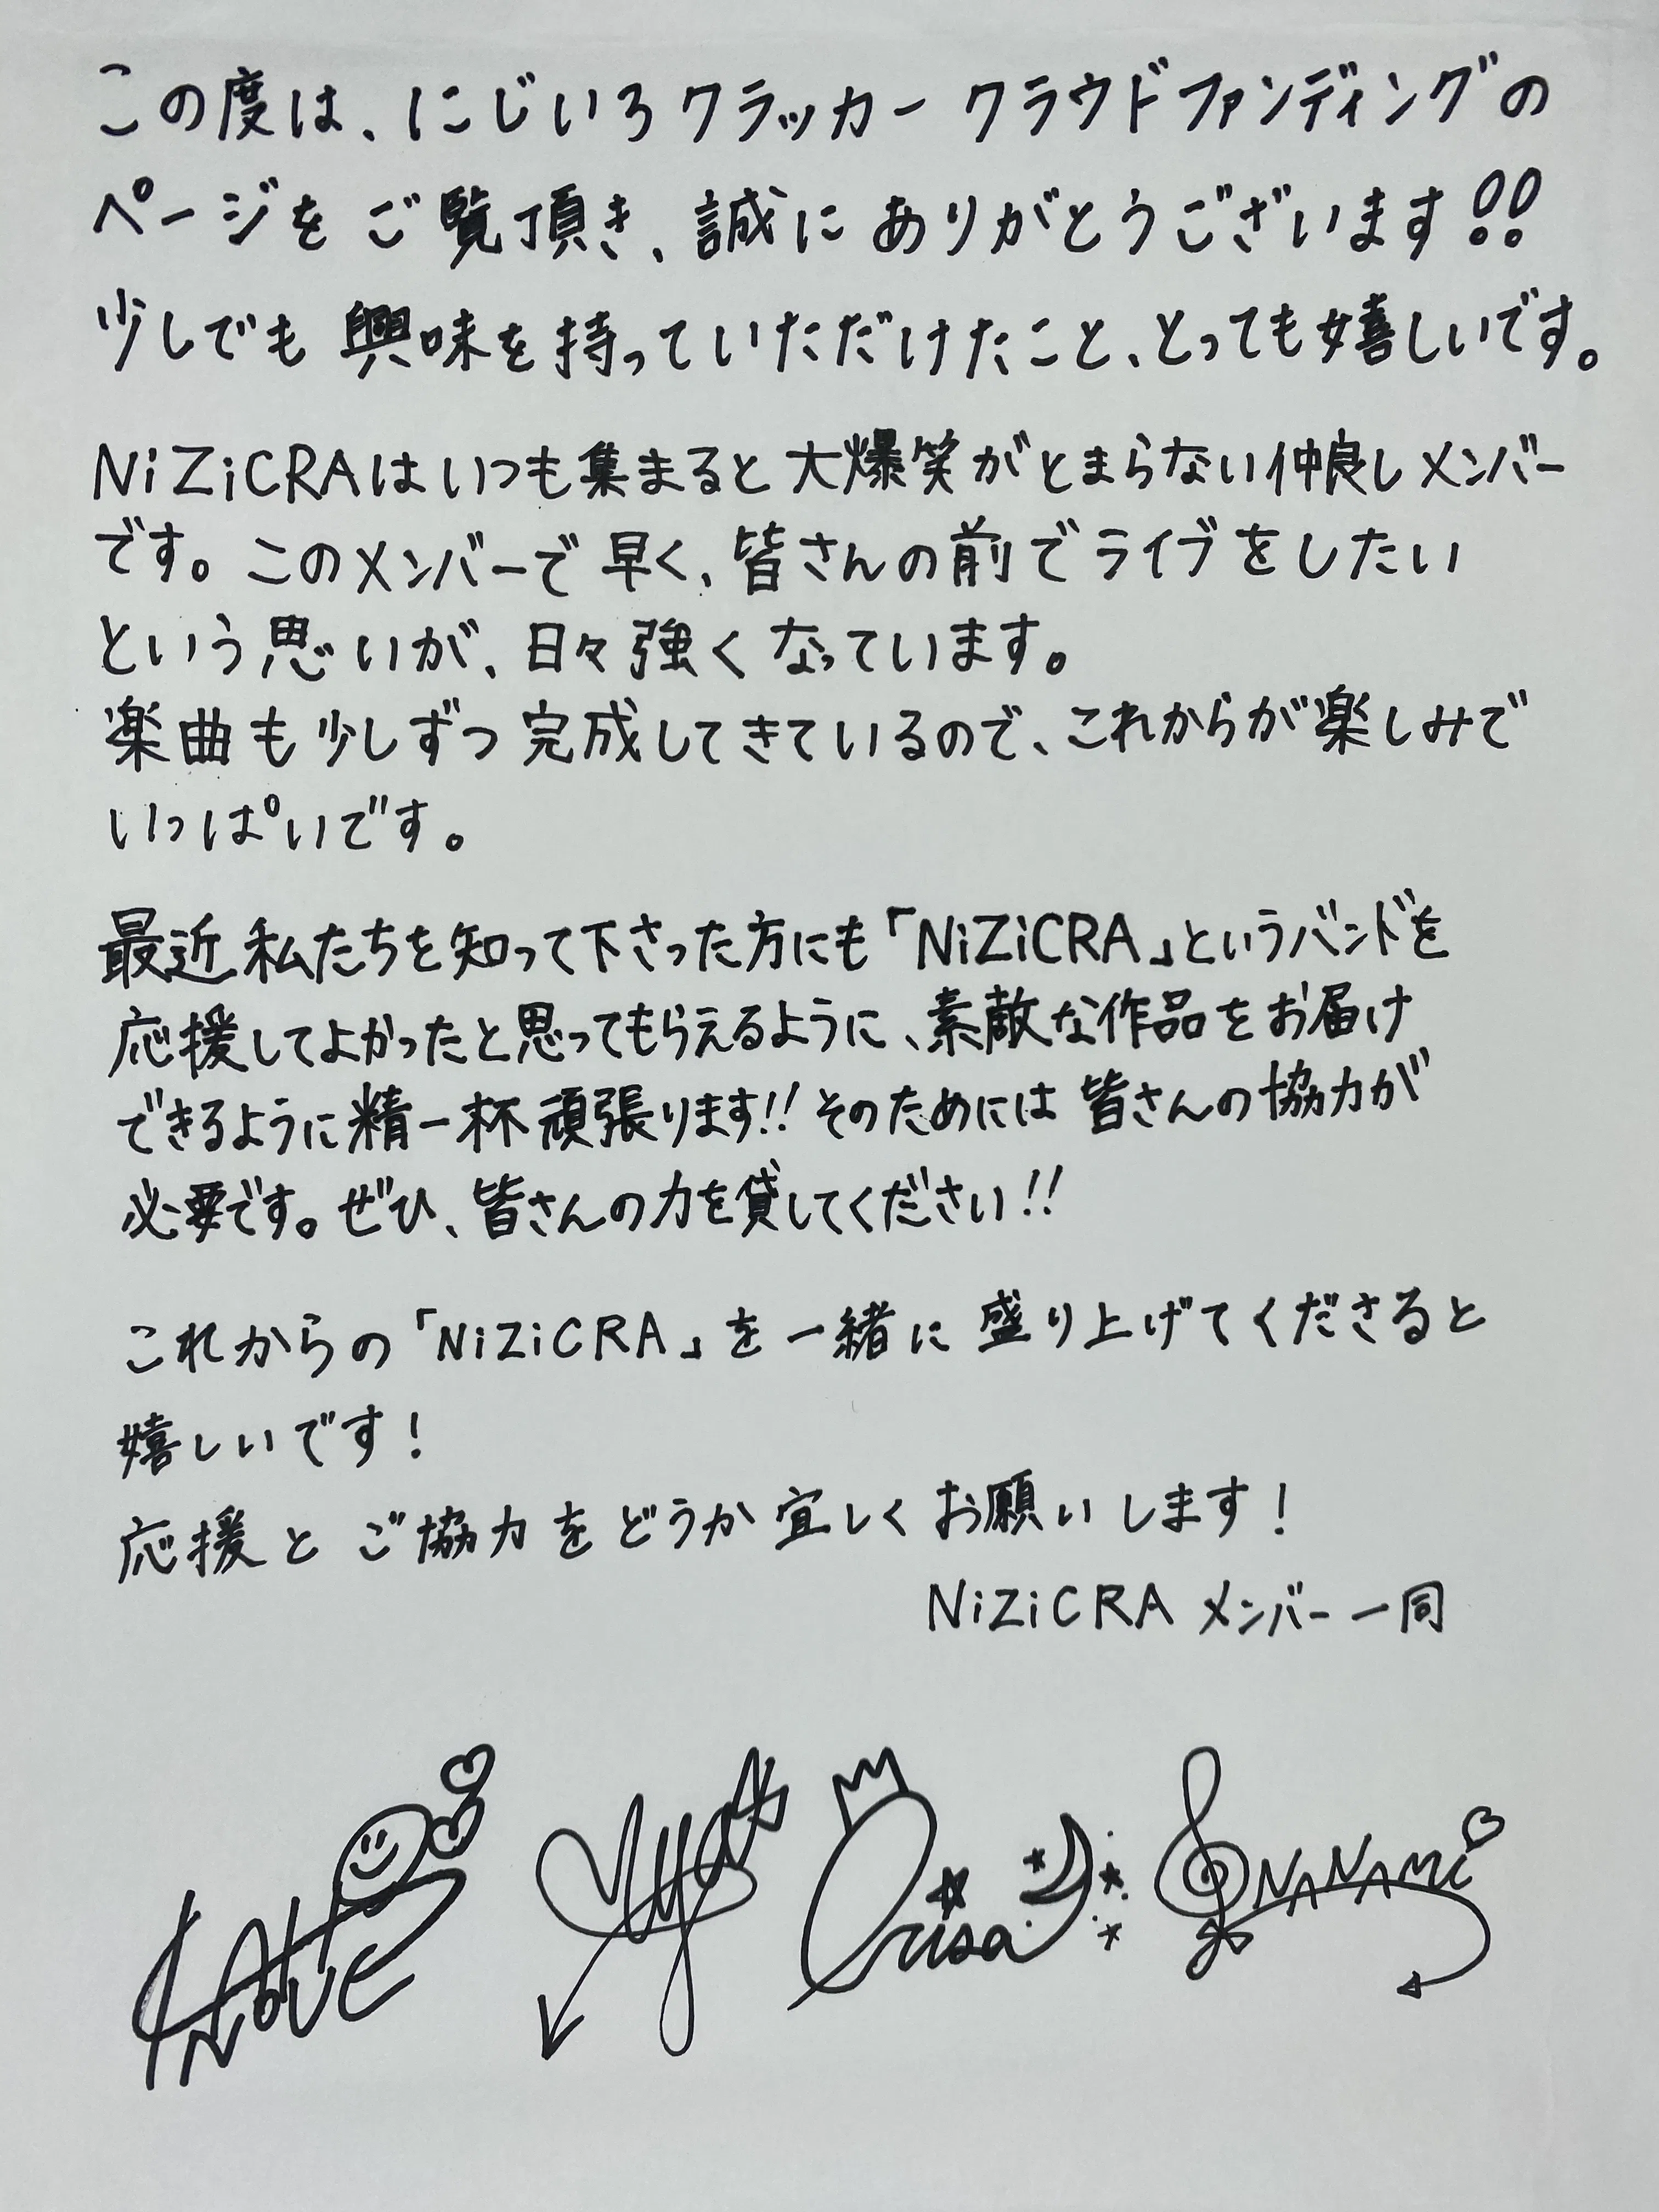 この度は、にじいろクラッカー クラウドファンディングの
ページをご覧頂き、誠にありがとうございます!!
少しでも興味を持っていただけたこと、とっても嬉しいです。
NiZiCRAはいつも集まると大爆笑がとまらない仲良しメンバー
です。このメンバーで早く、皆さんの前でライブをしたい
という思いが、日々強くなっています。
楽曲も少しずつ完成してきているので、これからが楽しみで
いっぱいです。
最近私たちを知って下さった方にも「NiZiCRA」というバンドを
応援してよかったと思ってもらえるように、素敵な作品をお届け
できるように精一杯頑張ります!!そのためには皆さんの協力が
必要です。ぜひ、皆さんの力を貸してください!!
これからの「NiZiCRA」を一緒に盛り上げてくださると
嬉しいです!
応援とご協力をどうか宜しくお願いします!
NiZiCRA メンバー一同
Orisa NANAMi